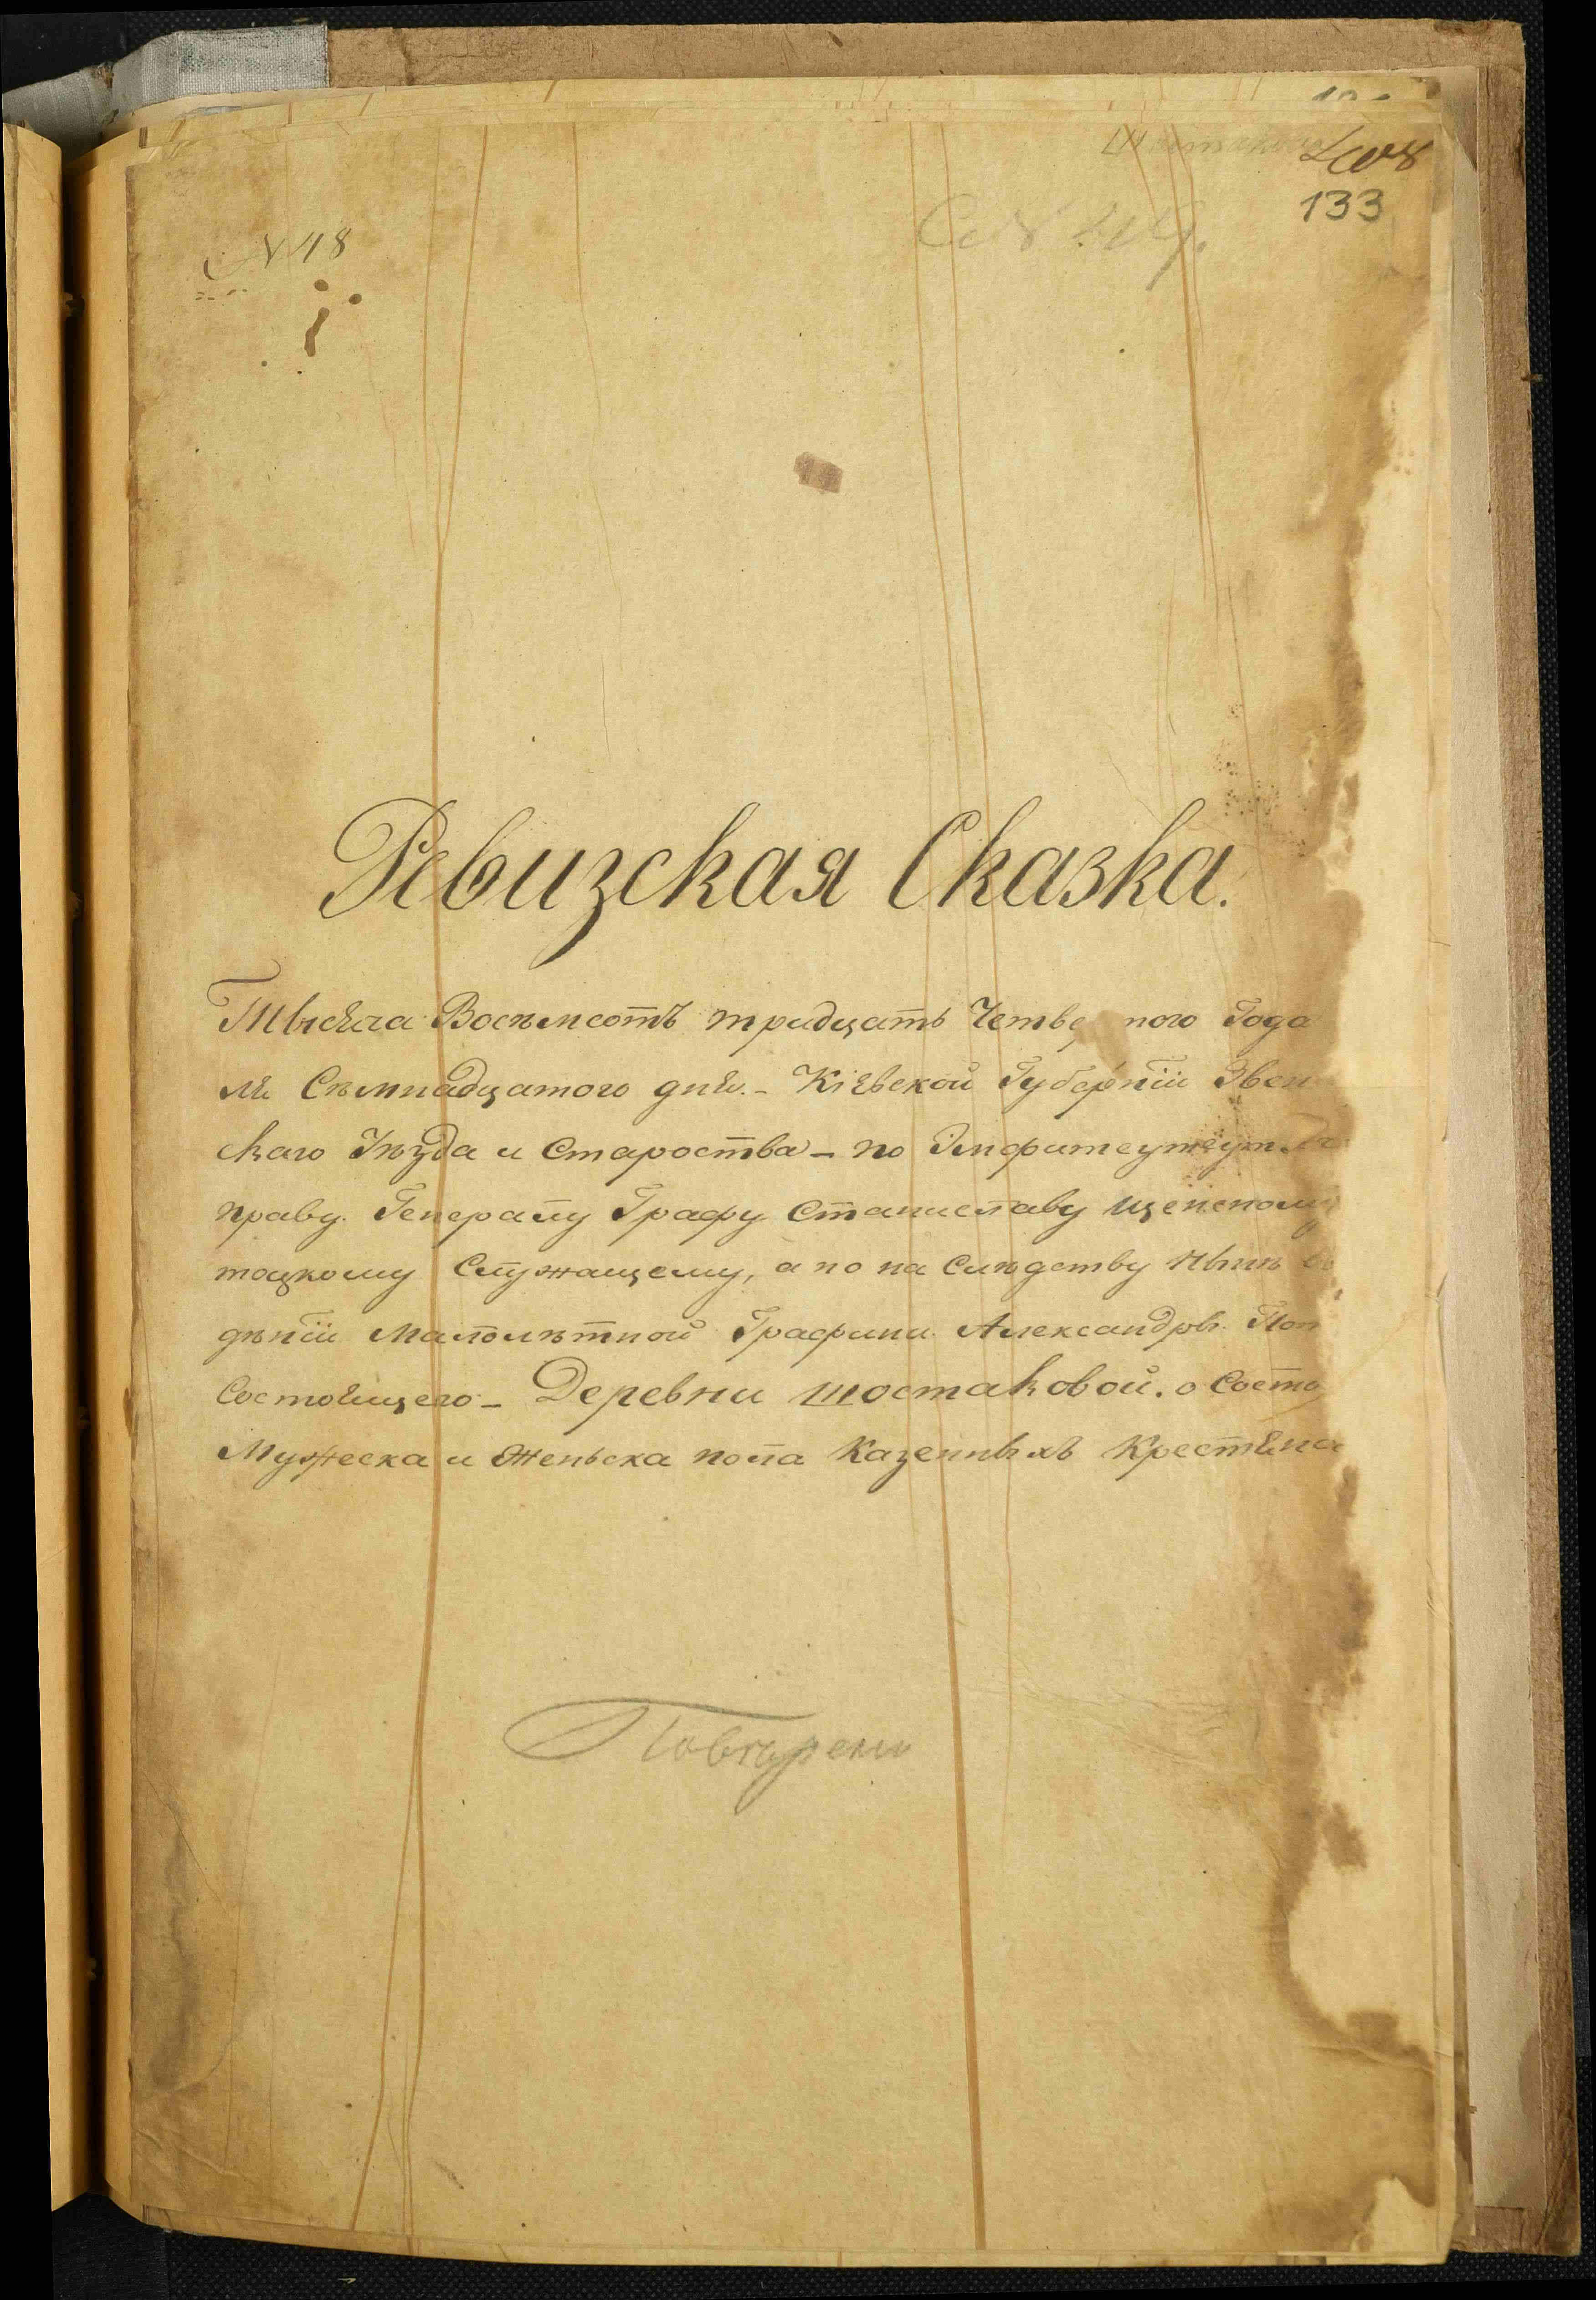 133
N 18
Ревизская Сказка.
Тысяча Восемсотъ тридцать Четве ного Года
ля Сѣмнадцатого дня. - Кіевской Губерніи Звен
скаго Уѣзда и Староства - по Эмфитеут
праву. Генералу Графу Станиславу щенсному
тоцкому Служащему, а по на Слѣдству нынѣ в
дѣніи Малолѣтной Графини Александры Пот
Состоящего - Деревни шостаковой. о Состо
Мужеска и Женьска пола Казенныхъ Крестьян